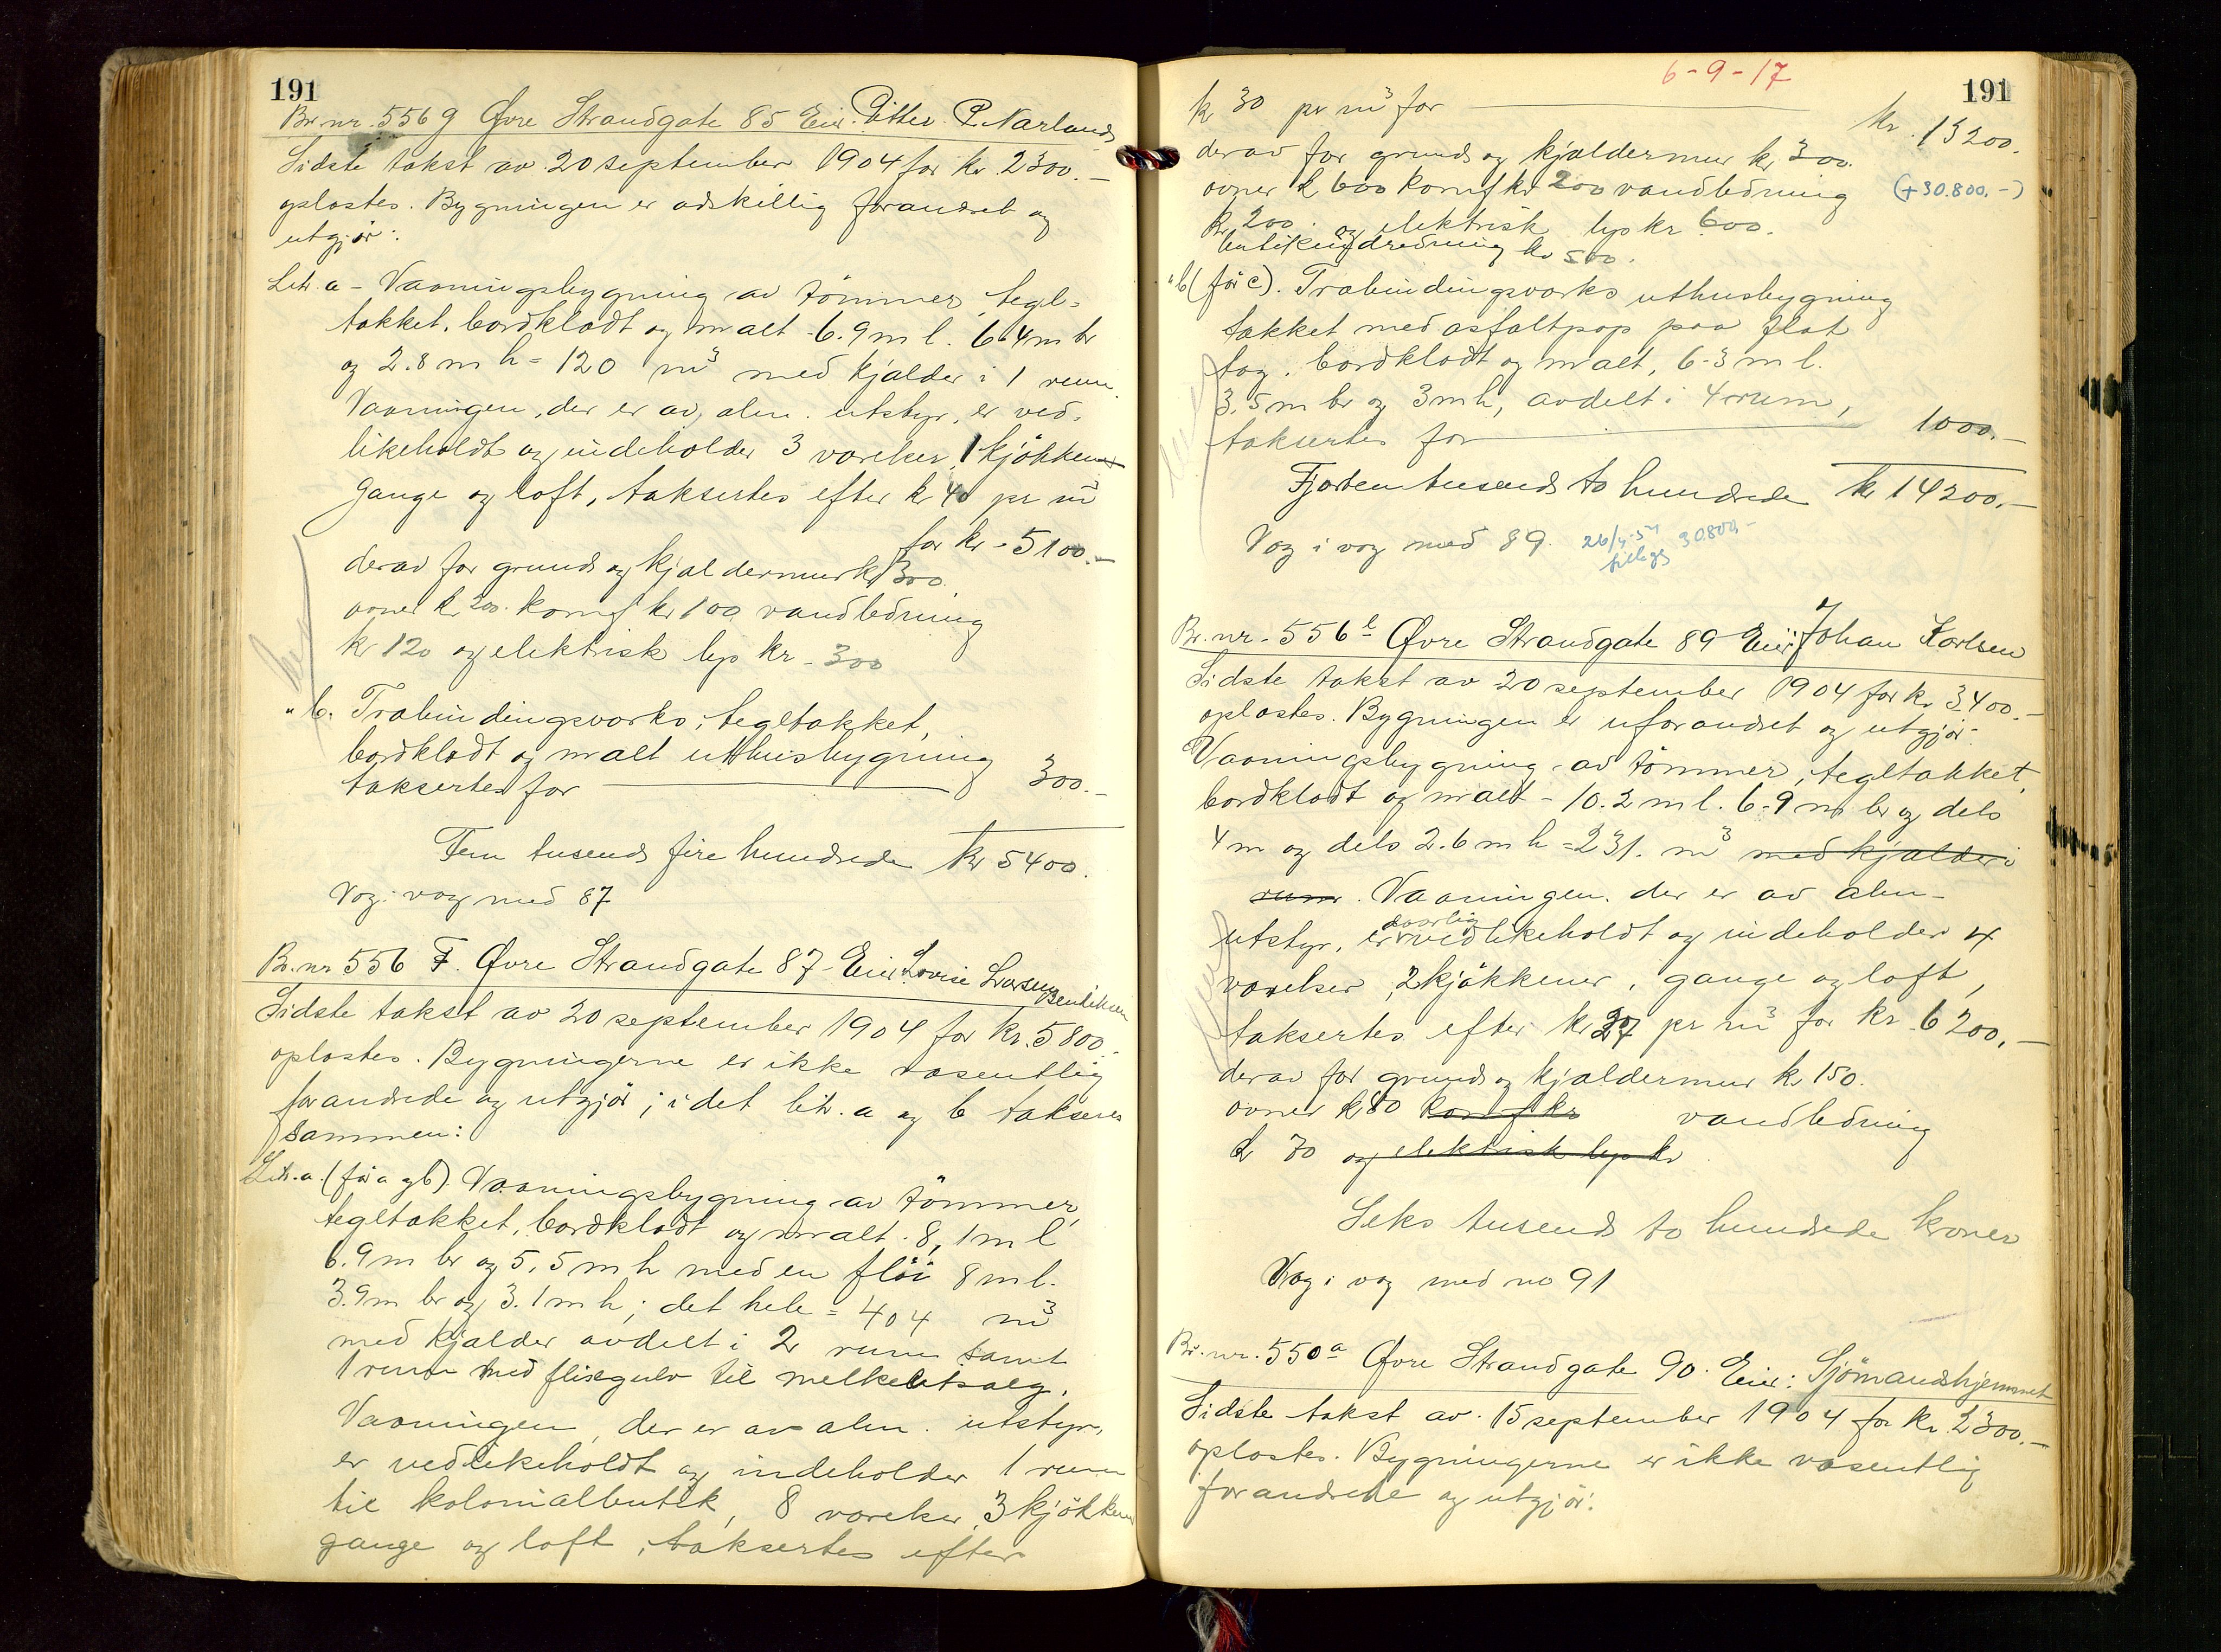 191
Br. nr. 556 g Øvre Strandgate 85 Eier. Pitter P. Narland
Sidste takst av 20 september 1904 for kr. 2300.-
oplæstes. Bygningen er adskillig forandret og
utgjör:
Litr. a - Vaaningsbygning av tömmer, tegl-
tækket, bordklædt og malt - 6.9 m l. 6.4 m br
og 2.8 m h = 120 m³ med kjælder i 1 rum
Vaaningen, der er av alm. utstyr, er ved-
likeholdt og indeholder 3 værelser, 1 kjökken
Gange og loft, taksertes efter kr 40 pr m³
for kr - 5100.-
derav for grund og kjældermur kr 300.
ovner kr 200. komf. kr 100 vandledning
kr 120 og elektrisk lys kr - 300
" b. Træbindingsværks, tegltækket,
bordklædt og malt uthusbygning
taksertes for 300.-
Fem tusend fire hundrede kr 5400.
Væg i væg med 87
Br. nr 556 F. Øvre Strandgate 87 - Eier. Lovise Larsen
Bendiksen
Sidste takst av 20 september 1904 for kr. 5800.-
oplæstes. Bygningerne er ikke væsentlig
forandrede og utgjör; idet litr. a og b takseres
sammen:
Litr. a. (för a og b). Vaaningsbygning av tömmer,
tegltækket, bordklædt og malt. 8,1 m l
6.9 m br og 5.5 m h med en flöi 8 m l.
3.9 m br og 3.1 m h; det hele = 404 m³
med kjælder avdelt i 2 rum samt
1 rum med flisegulv til melkeutsalg.
Vaaningen, der er av alm. utstyr,
er vedlikeholdt og indeholder 1 rum
til kolonialbutik, 8 værelser, 3 kjökkener
gange og loft, taksertes efter
6-9-17
191
kr 30 pr m³ for kr. 13200.
derav for grund og kjældermur kr 300.
ovner kr 600 komf kr 200 vandledning (+30.800.-)
kr 200. og elektrisk lys kr 600.
butikindredning kr 500.
" b (för c). Træbindingsværks uthusbygning
tækket med asfaltpap paa flat
tag, bordklædt og malt, 6.3 m l.
3.5 m br og 3 m h, avdelt i 4 rum,
taksertes for 1000.-
Fjorten tusend to hundrede kr 14200.-
Væg i væg med 89. 30800.-
Br. nr. 556 e Øvre Strandgate 89 Eier: Johan Karlsen
Sidste takst av 20 september 1904 for kr. 3400.-
oplæstes. Bygningen er uforandret og utgjör:
Vaaningsbygning av tömmer, tegltækket,
bordklædt og malt - 10.2 m l. 6.9 m br og dels
4 m og dels 2.6 m h = 231. m³ med kjælder i
rum. Vaaningen, der er av alm-
daarlig
utstyr, er vedlikeholdt og indeholder 4
værelser, 2 kjökkener, gange og loft,
taksertes efter kr 27 pr m³ for kr. 6200.-
derav for grund og kjældermur kr 150.
ovner kr 80 komf kr vandledning
kr 70 og elektrisk lys kr
Seks tusend to hundrede kroner
Væg i væg med no 91
Br. nr. 550 a Øvre Strandgate 90. Eier: Sjömandshjemmet
Sidste takst av. 15 september 1904 for kr. 2300.-
oplæstes. Bygningerne er ikke væsentlig
forandrede og utgjör: